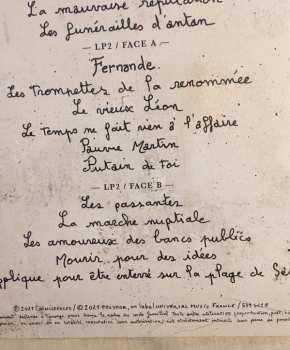 La mauvaise réputation
Les funérailles d'antan
— LP2 / FACE A —
Fernande.
Les Trompettes de la renommée
Le vieux Léon
Le temps ne fait rien à l'affaire
Pauvre Martin
Putain de toi
— LP2 / FACE B —
Les passantes
La marche nuptiale
Les amoureux des bancs publics
Mourir pour des idées
pplique pour être enterré sur la plage de Sè
UNIVERSAL MUSIC FRANCE